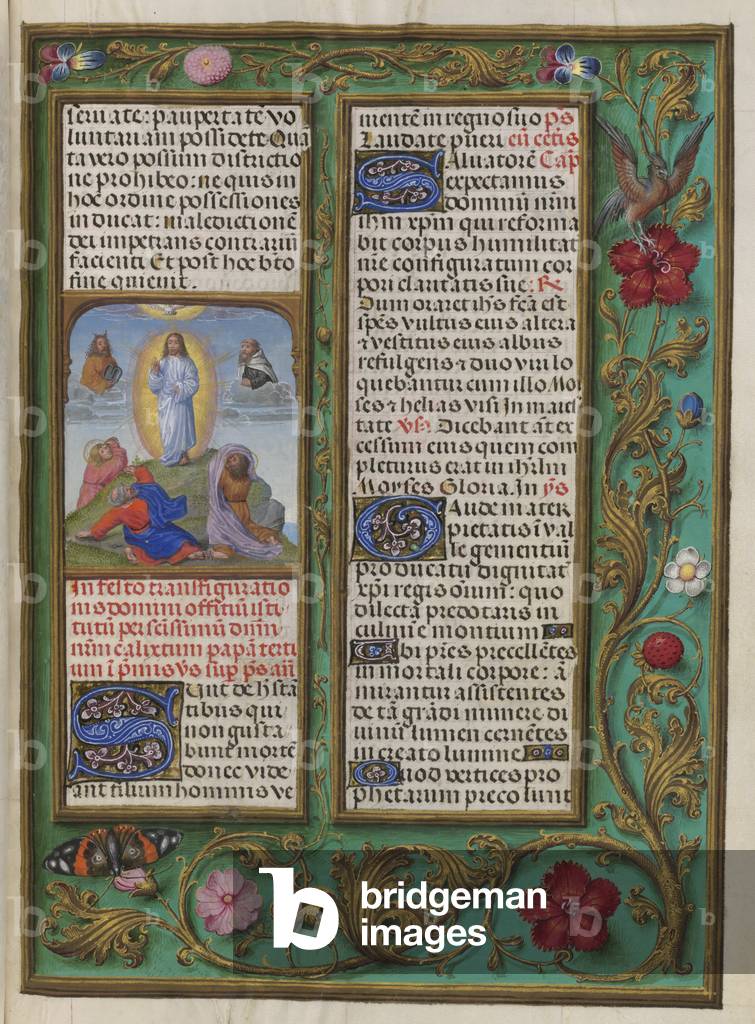 seruate: paupertatē vo
luntariam possidete. Qua
ta vero possum districtio
ne prohibeo: ne quis in
hoc ordine possessiones
inducat: maledictionē
dei impetrans contrariū
facienti Et post hec bīto
fine quieuit.
In festo transfiguratio
nis domini offitiū isti
tutū per scissimū dnm̄
nr̄m calixtum papā terti
um ī p̄mis vs̄ sup̄ ps̄ an̄
Sunt de hic stā
tibus qui
non gusta
bunt mortē
donec vide
ant filium hominis ve
mentē in regno suo ps̄
Laudate pueri cū cetis
Saluatorē Cap̄
expectamus
dominū nr̄m
ihm̄ xpm̄ qui reforma
bit corpus humilitat
nr̄e configuratum cor
pori claritatis sue: R̄
Dum oraret ihs̄ fc̄a est
spēs vultus eius altera
⁊ vestitus eius albus
refulgens ⁊ duo viri lo
quebantur cum illo Moi
ses ⁊ helias visi In maies
tate vs̄. Dicebant āt ex
cessum eius quem com
pleturus erat in ihr̄lm
Moyses Gloria. In ȳs
Gaude mater
pietatis ī val
le gementiū
producatū dignitat
xp̄i regis oium̄: quo
dilecta predotaris in
culmīe montium
Ubi pr̄es precellētes
in mortali corpore: ā
mirantur assistentes
de tā grādi munere di
uinū lumen cernētes
in creato lumine
Quod vertices pro
phetarum preco lunt
b bridgeman
images